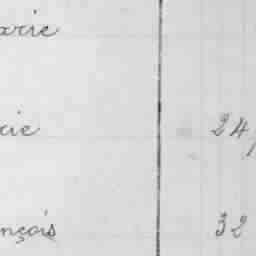 arie
rie 24
nçois 32